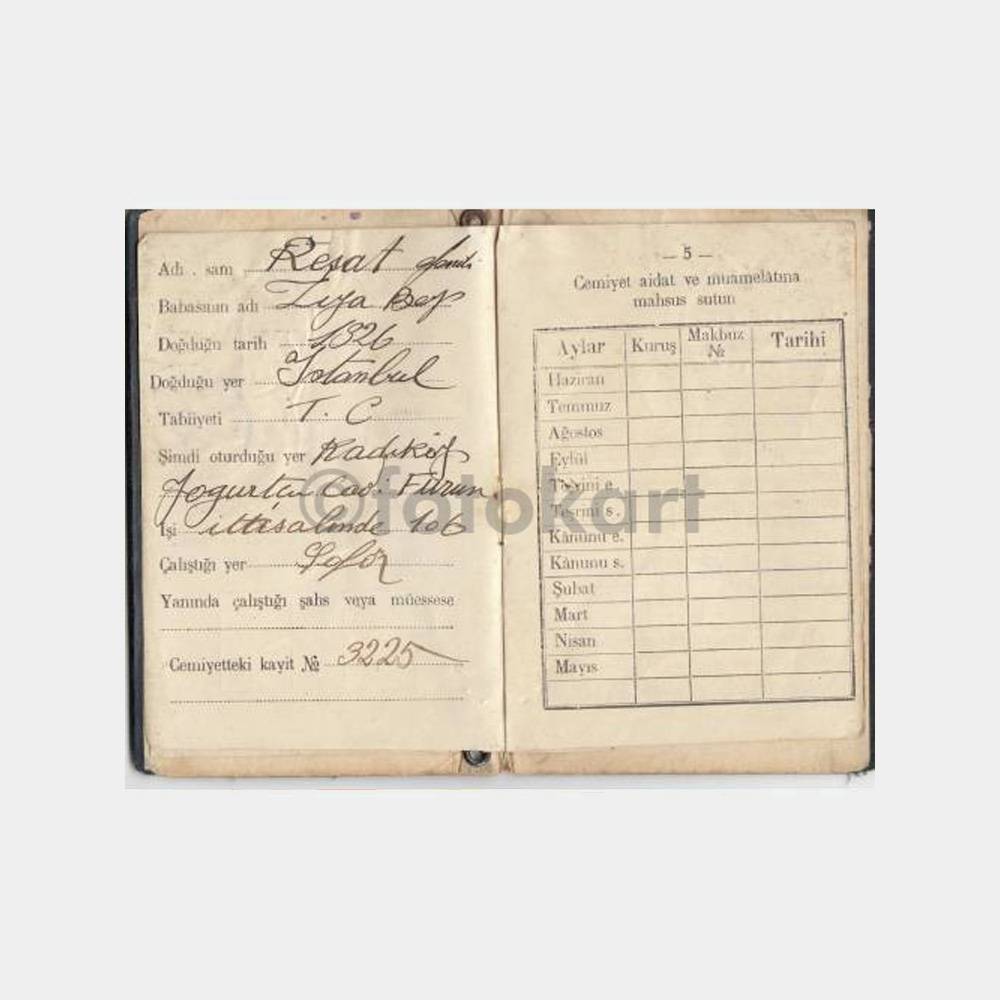 Adı . sanı Reşat
Babasının adı Ziya Bey
Doğduğu tarih 1326
Doğduğu yer İstanbul
Tabiiyeti T. C
Şimdi oturduğu yer Kadıköy
Yogurtçu Cad. Furun
İşi ittisalinde 106
Çalıştığı yer Şoför
Yanında çalıştığı şahs veya müessese
Cemiyetteki kayit № 3225
— 5 —
Cemiyet aidat ve muamelâtına
mahsus sutun
Aylar Kuruş Makbuz № Tarihi
Haziran
Temmuz
Ağustos
Eylûl
Teşrini e.
Teşrini s.
Kânunu e.
Kânunu s.
Şubat
Mart
Nisan
Mayıs
©fotokart